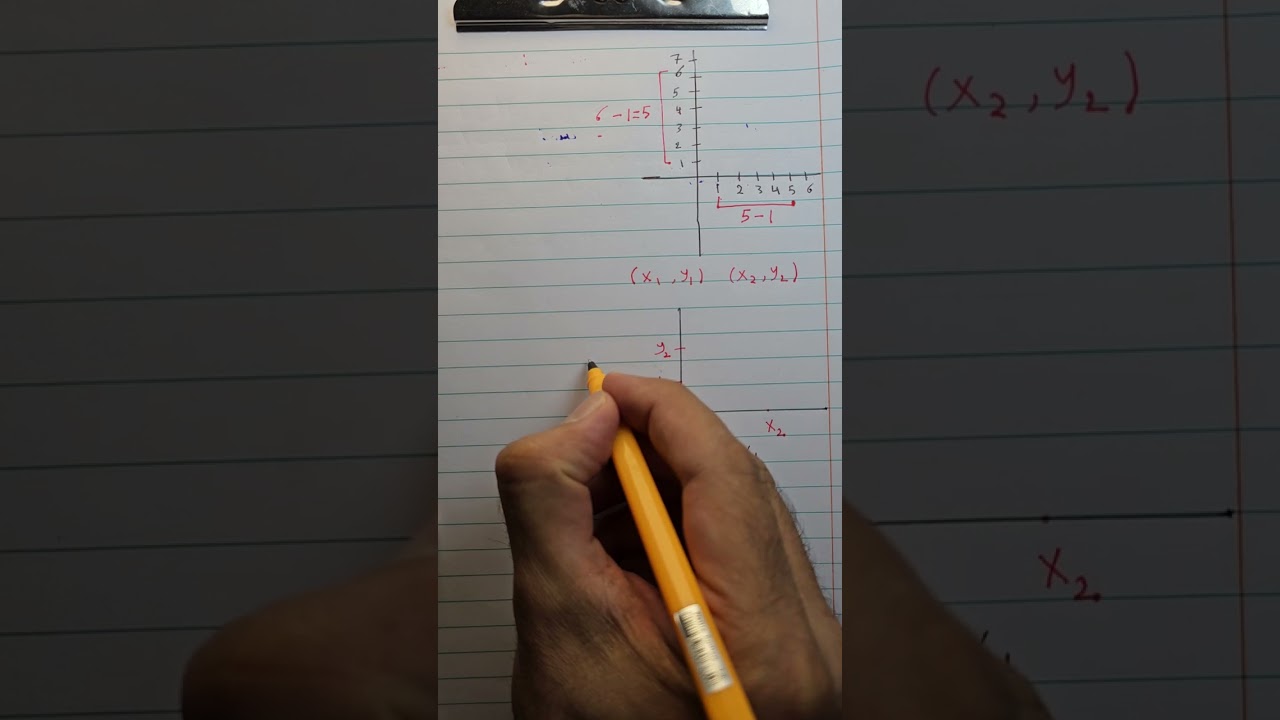 7
6
5
6-1=5 4
3
2
1
1 2 3 4 5 6
5-1
(x₁,y₁) (x₂,y₂)
y₂
x₂
(x₂,y₂)
x₂